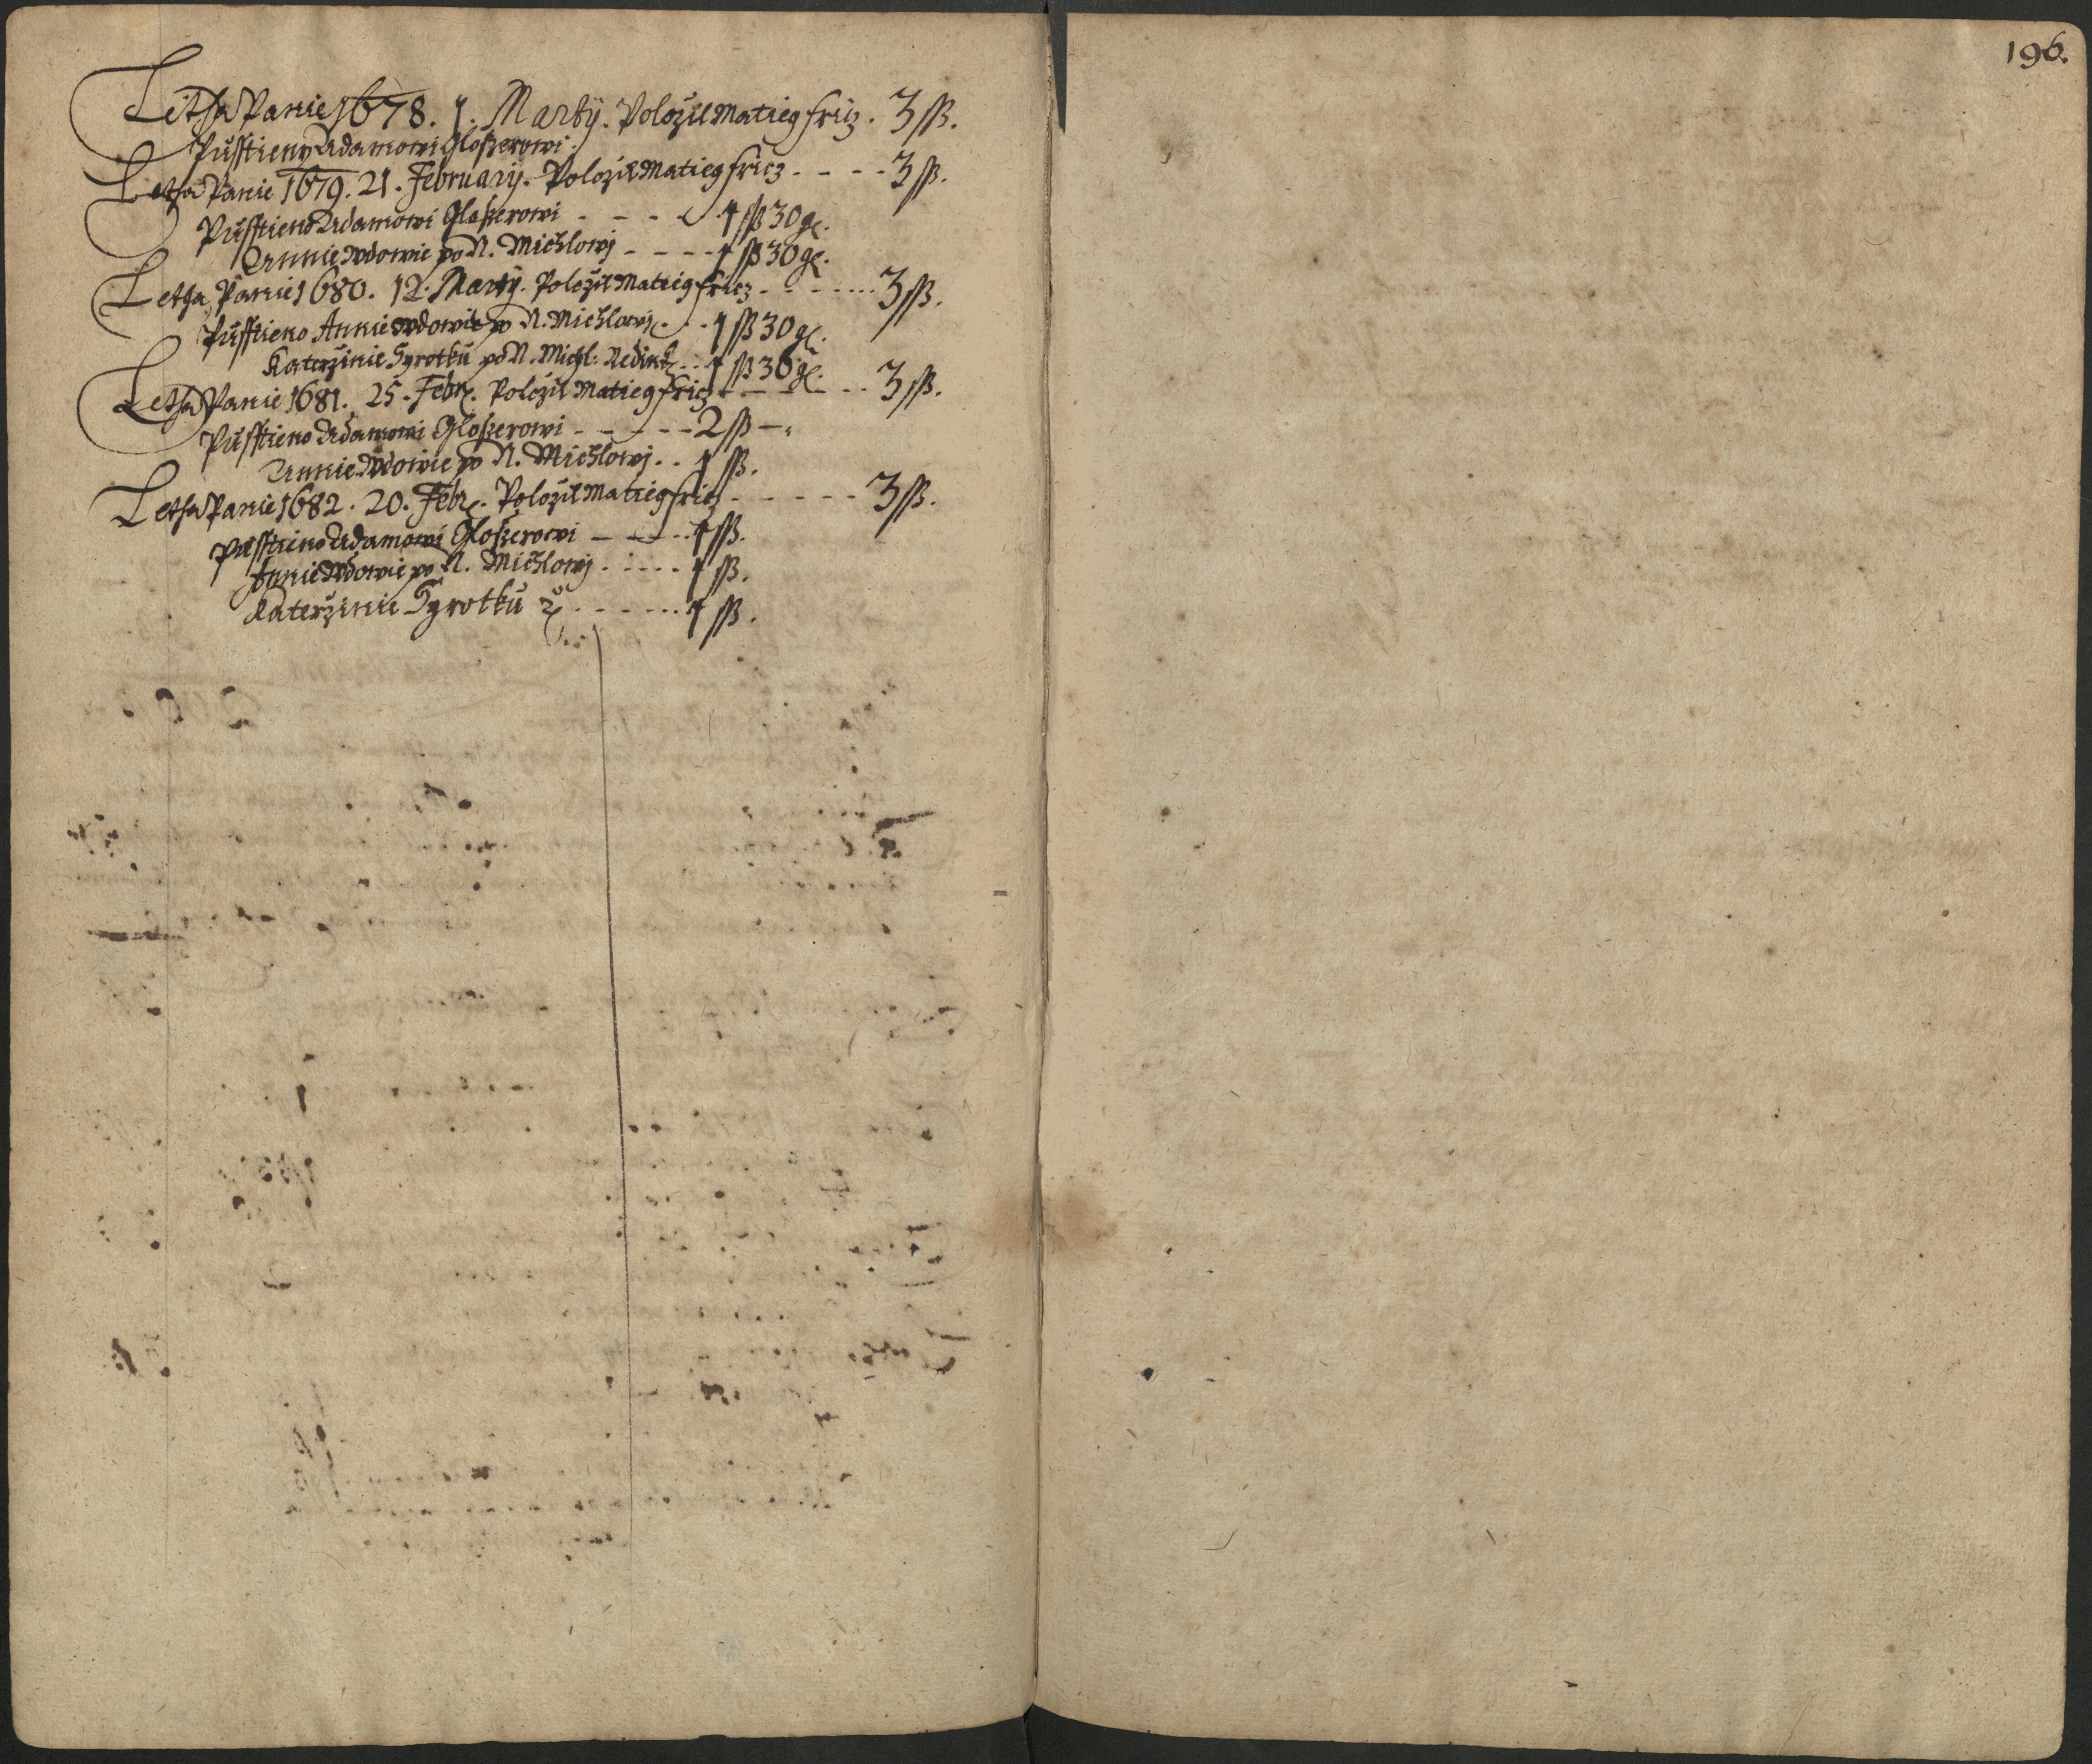 Letha Panie 1678. 1. Marty. Položil Matieg Fricz. 3 ß.
Pussttieny Adamowi Gloßerowi.
Letha Panie 1679. 21. February. Položil Matieg Fricz. - - - - 3 ß.
Pussttieno Adamowi Gloßerowi - - - - 1 ß 30 g.
Annie Wdowie po N. Michlowj - - - - 1 ß 30 g.
Letha Panie 1680. 12. Marty. Položil Matieg Fricz - - - - 3 ß.
Pussttieno Annie Wdowie po N. Michlowj. - - 1 ß 30 g.
Katerzinie Syrotku po N. Michl: - - 1 ß 30 g.
Letha Panie 1681. 25. Febr. Položil Matieg Fricz - - - - 3 ß.
Pussttieno Adamowi Gloßerowi - - - - - 2 ß -
Annie Wdowie po N. Michlowj. . 1 ß.
Letha Panie 1682. 20. Febr. Položil Matieg Fricz - - - - - 3 ß.
Pussttieno Adamowi Gloßerowi - - - - 1 ß.
Annie Wdowie po N. Michlowj. - - - - 1 ß.
Katerzinie Syrotku - - - - - 1 ß.
196.